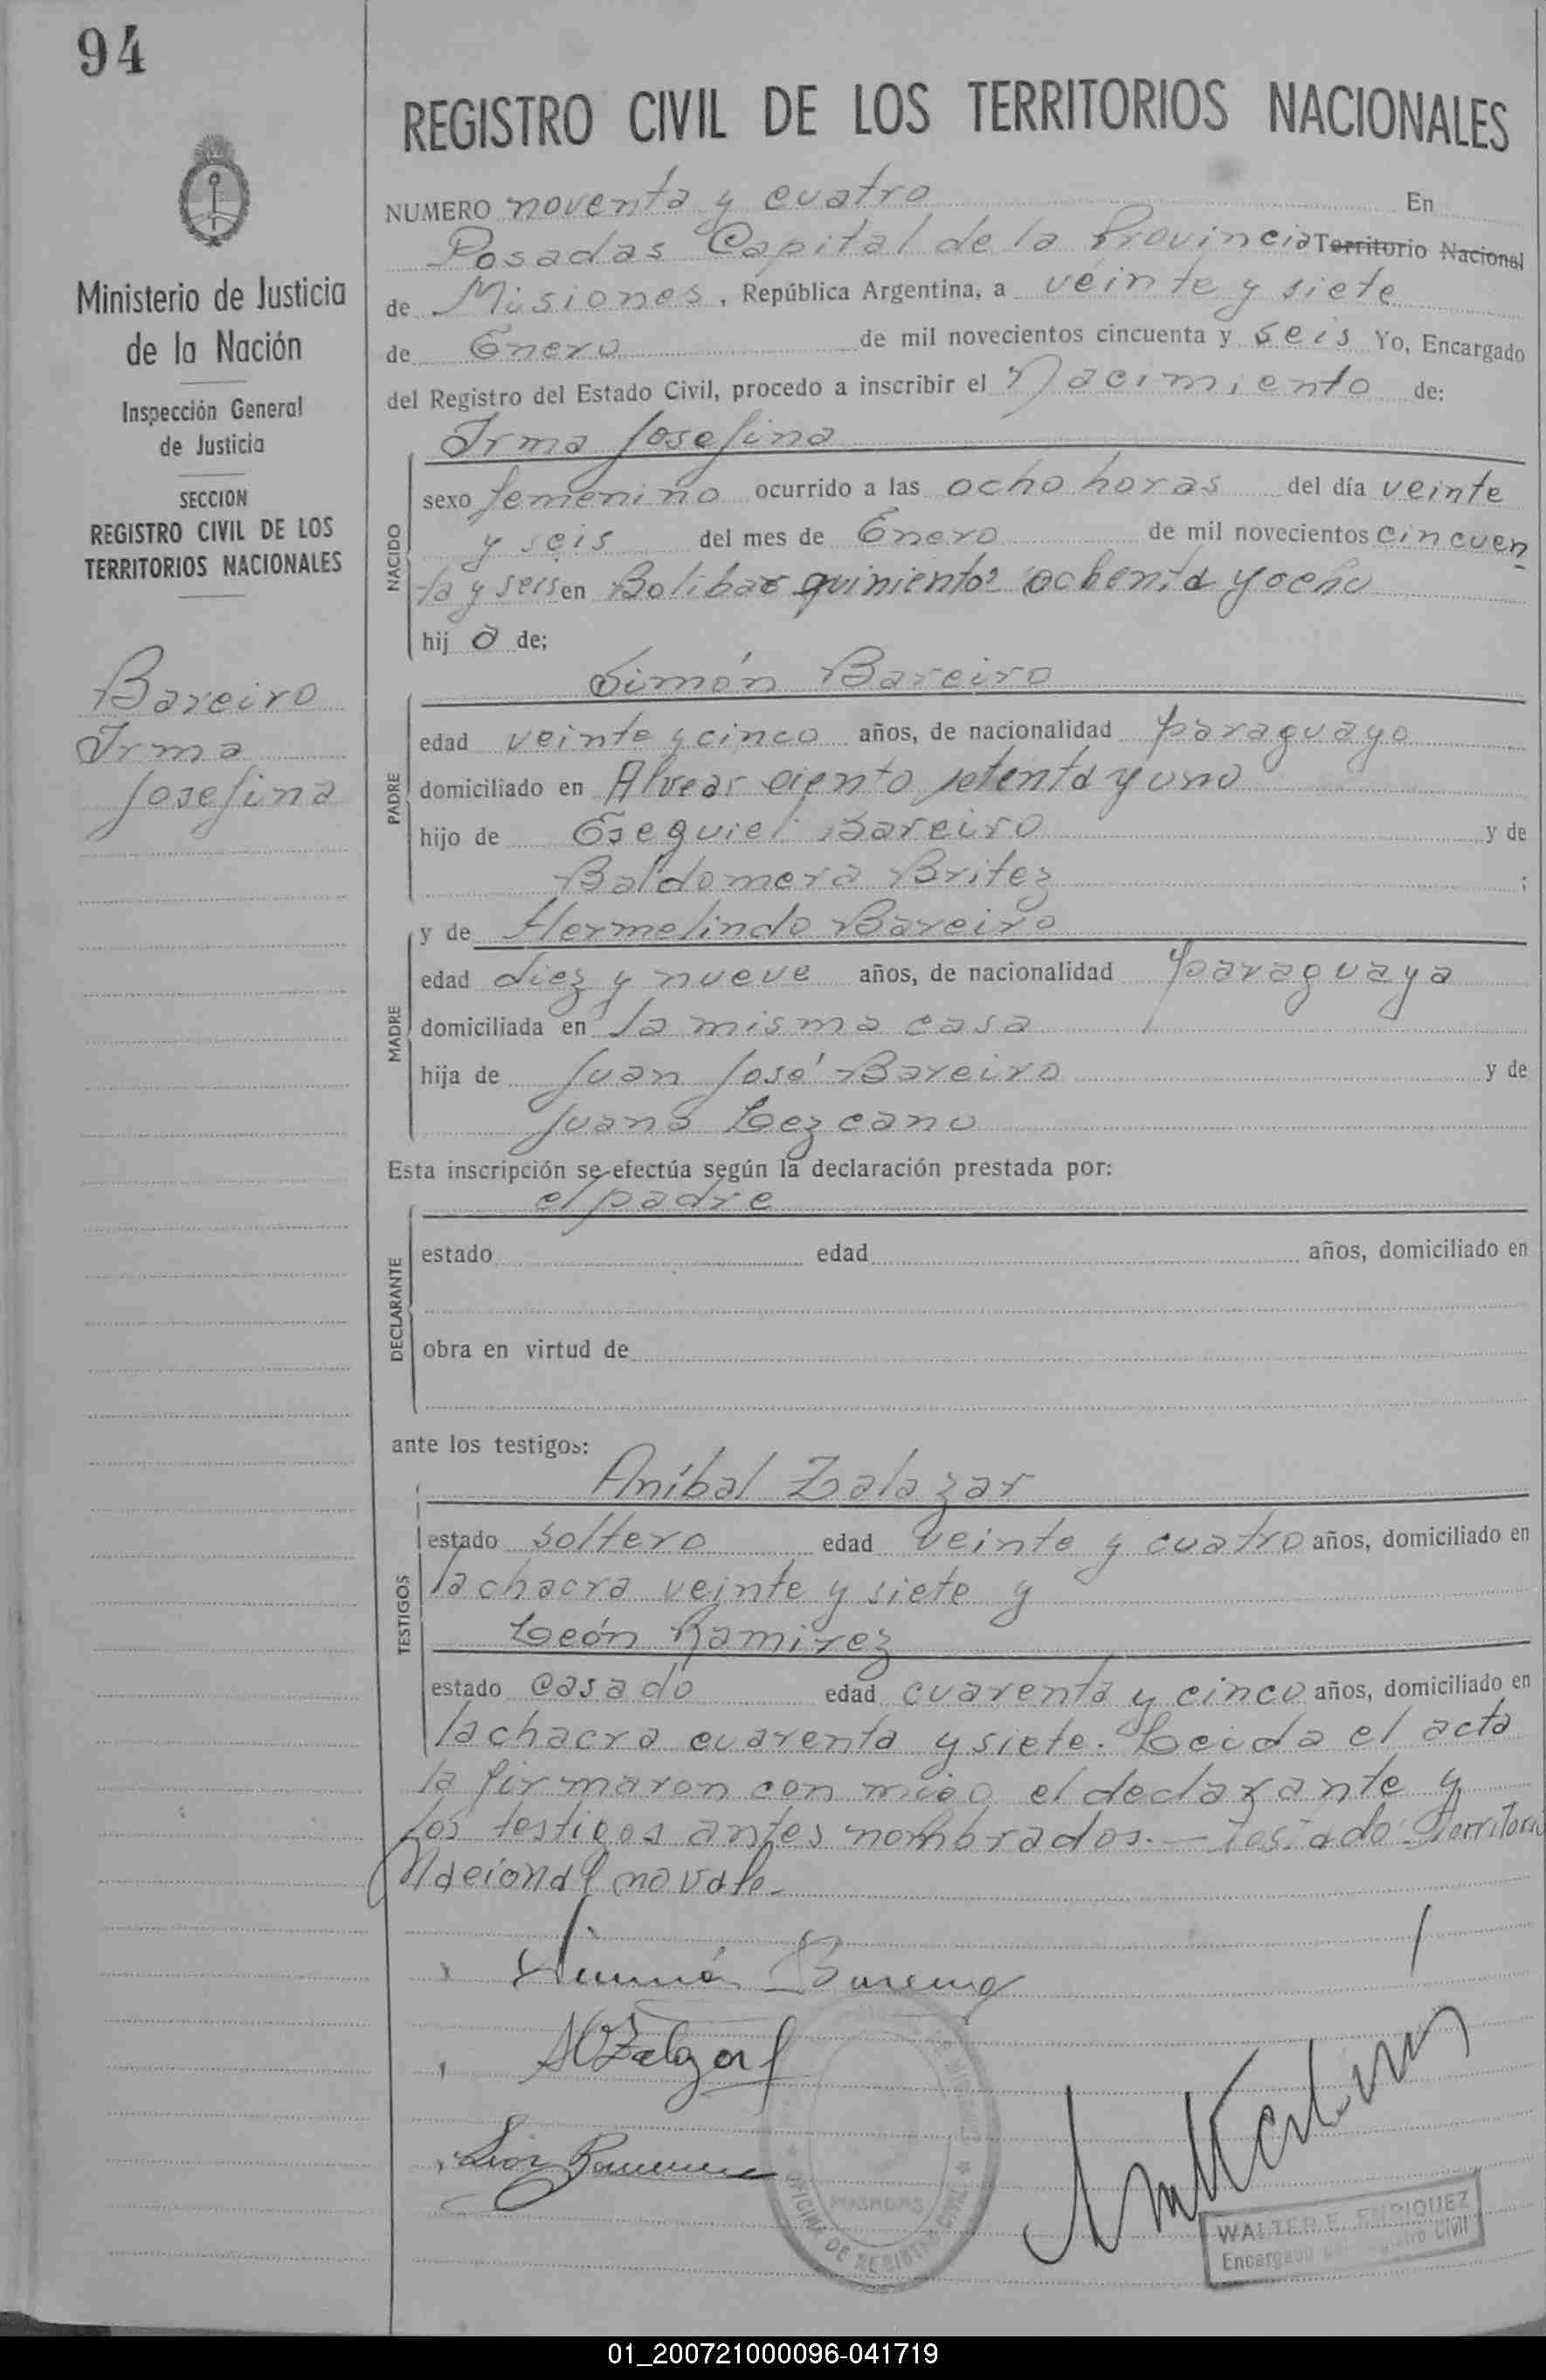 94
REGISTRO CIVIL DE LOS TERRITORIOS NACIONALES
Ministerio de Justicia
de la Nación
Inspección General
de Justicia
SECCION
REGISTRO CIVIL DE LOS
TERRITORIOS NACIONALES
Bareiro
Irma
Josefina
NUMERO noventa y cuatro En
Posadas Capital de la Provincia Territorio Nacional
de Misiones, República Argentina, a veinte y siete
de Enero de mil novecientos cincuenta y seis Yo, Encargado
del Registro del Estado Civil, procedo a inscribir el Nacimiento de:
Irma Josefina
NACIDO
sexo femenino ocurrido a las ocho horas del día veinte
y seis del mes de Enero de mil novecientos cincuen
ta y seis en Bolibar quinientos ochenta y ocho
hij a de;
Simón Bareiro
PADRE
edad veinte y cinco años, de nacionalidad paraguayo
domiciliado en Alvear ciento setenta y uno
hijo de Esequiel Bareiro y de
Baldomera Britez ;
y de Hermelinda Bareiro
MADRE
edad diez y nueve años, de nacionalidad paraguaya
domiciliada en la misma casa
hija de Juan José Bareiro y de
Juana Lezcano
Esta inscripción se efectúa según la declaración prestada por:
el padre
DECLARANTE
estado edad años, domiciliado en
obra en virtud de
ante los testigos:
Aníbal Zalazar
TESTIGOS
estado soltero edad veinte y cuatro años, domiciliado en
la chacra veinte y siete y
León Ramirez
estado casado edad cuarenta y cinco años, domiciliado en
la chacra cuarenta y siete. Leida el acta
la firmaron con migo el declarante y
los testigos antes nombrados.- Testado: Territorio
Nacional no vale-
Simón Bareiro
Zalazar
León Ramirez
POSADAS
OFICINA DE REGISTRO CIVIL
WALTER E. ENRIQUEZ
Encargado del Registro Civil
01_200721000096-041719